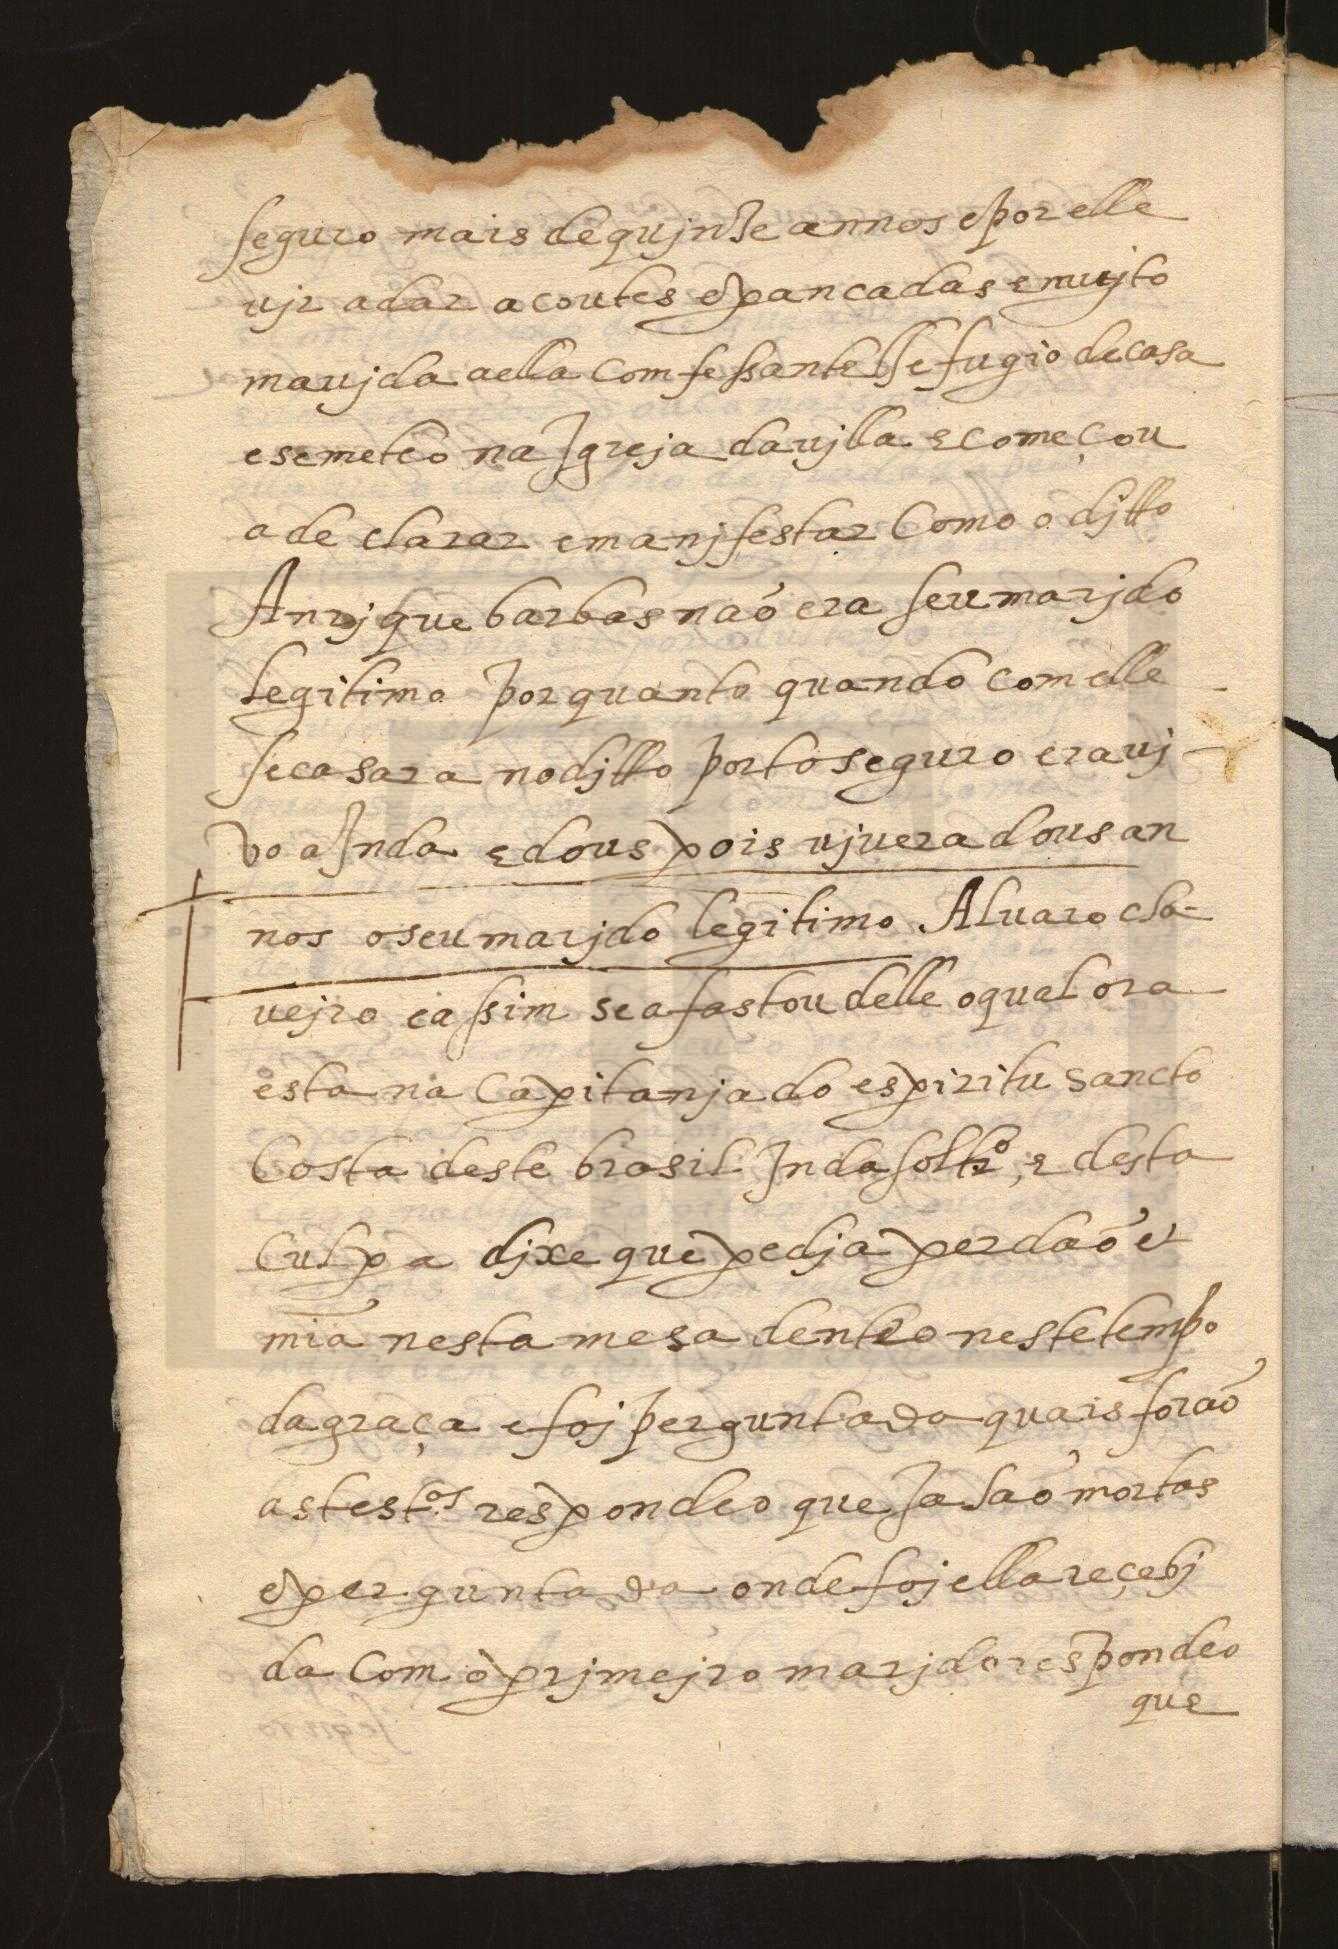 seguro mais de quinze annos e por elle
vjr a dar acoutes e pancadas e mujto
ma vjda a ella comfessante se fugio de casa
e se meteo na Igreja da vjlla e começou
a declarar e manjfestar como o djtto
Anrjque barbas não era seu marjdo
legitimo por quanto quando com elle
se casara no djtto porto seguro era vj
vo aInda e dous pois vjvera dous an
nos o seu marjdo legitimo Alvaro cha-
vejro e assim se afastou delle o qual ora
esta na Capitanja do espiritu sancto
Costa deste brasil Inda soltrº, e desta
Culpa djxe que pedja perdaõ et
mia nesta mesa dentro neste tempo
da graça e foj perguntada quais foraõ
as testas respondeo que Ja saõ mortas
e perguntada onde foj ella recebj
da com o prjmejro marjdo respondeo
que